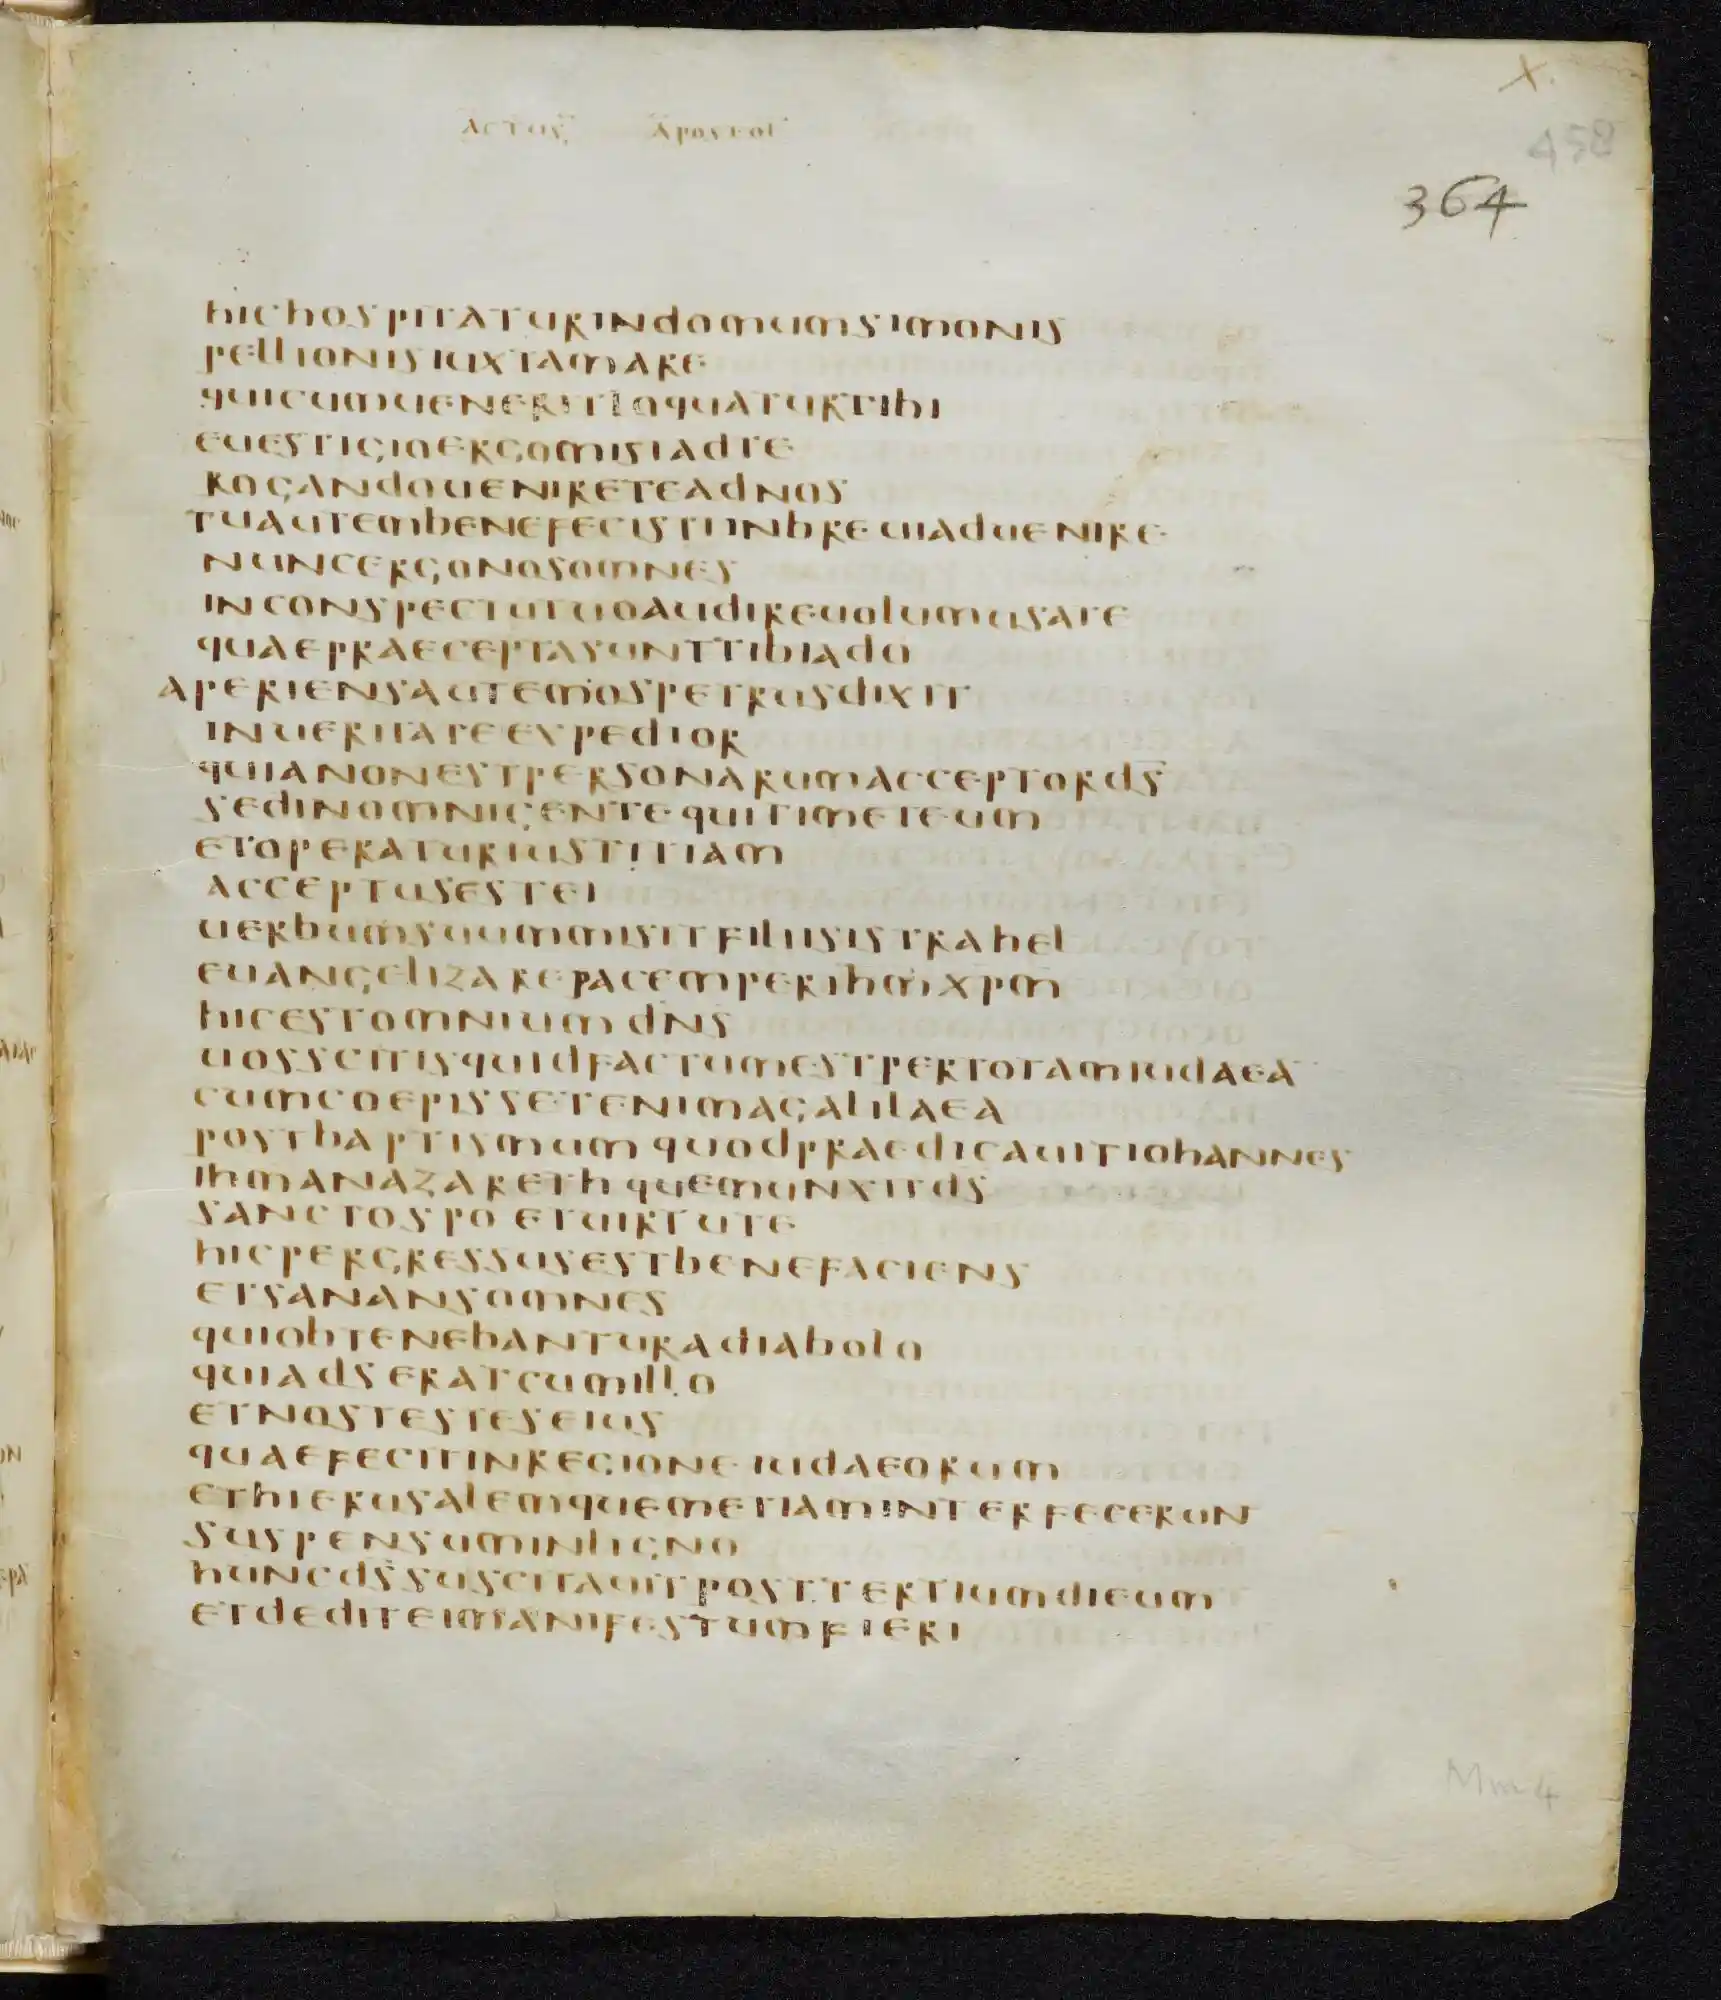 X.
458
actus apostol
364
hichospitaturindomumsimonis
pellionisiuxtamare
quicumueneritloquaturtibi
euestigioergomisiadte
rogandouenireteadnos
tuautembenefecistiinbreuiaduenire
nuncergonosomnes
inconspectutuoaudireuolumusate
quaepraeceptasunttibiado
aperiensautemospetrusdixit
inueritateexpedior
quianonestpersonarumacceptords
sedinomnigentequitimeteum
etoperaturiustitiam
acceptusestei
uerbumsuummisitfiliisistrahel
euangelizarepacemperihmxpm
hicestomniumdns
uosscitisquidfactumestpertotamiudaea
cumcoepissetenimagalilaea
postbaptismumquodpraedicauitiohannes
ihmanazarethquemunxitds
sanctospoetuirtute
hicpergressusestbenefaciens
etsanansomnes
quiobtenebanturadiabolo
quiadseratcumillo
etnostesteseius
quaefecitinregioneiudaeorum
ethierusalemquemetiaminterfecerunt
suspensuminligno
huncdssuscitauitposttertiumdieum
etdediteimanifestumfieri
Mm 4